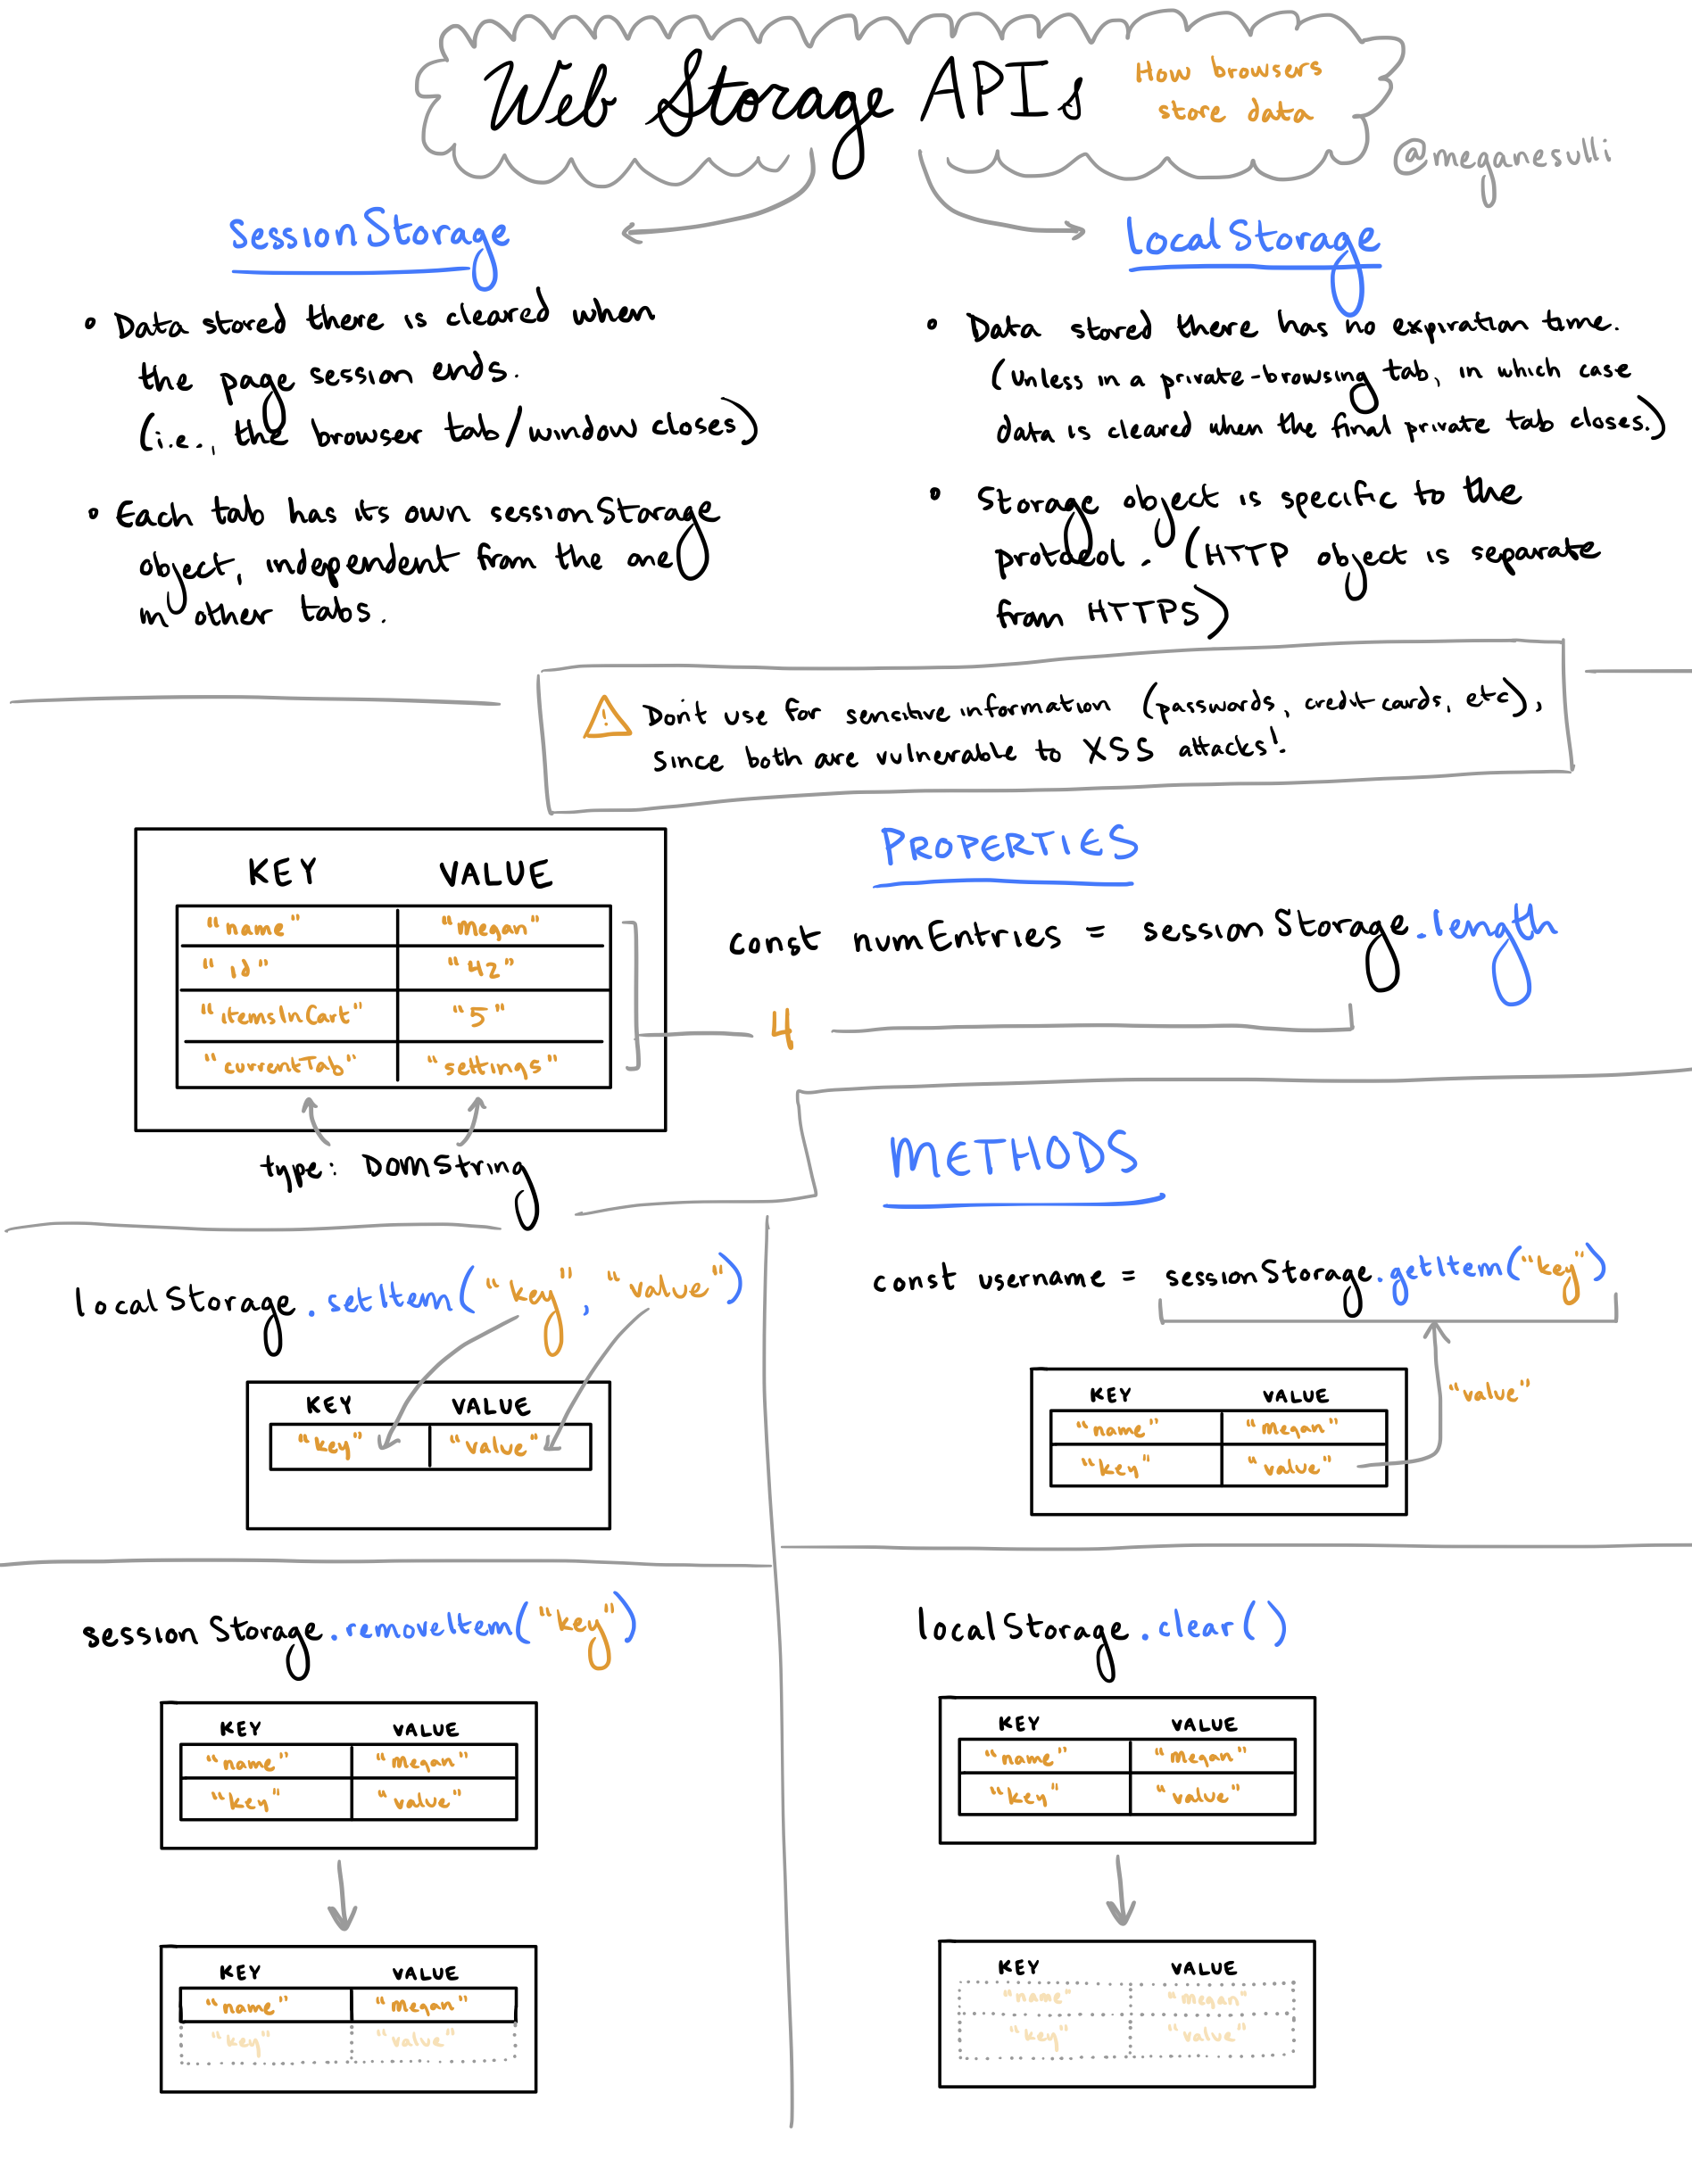 Web Storage APIs
How browsers
store data
@meganesulli
sessionStorage
• Data stored there is cleared when
the page session ends.
(i.e., the browser tab/window closes)
• Each tab has its own sessionStorage
object, independent from the one
in other tabs.
localStorage
• Data stored there has no expiration time.
(Unless in a private-browsing tab, in which case
data is cleared when the final private tab closes.)
• Storage object is specific to the
protocol. (HTTP object is separate
from HTTPS)
⚠ Don't use for sensitive information (passwords, credit cards, etc),
since both are vulnerable to XSS attacks!
KEY VALUE
"name" "Megan"
"id" "42"
"itemsInCart" "5"
"currentTab" "settings"
type: DOMString
PROPERTIES
const numEntries = sessionStorage.length
4
METHODS
localStorage.setItem("key", "value")
KEY VALUE
"key" "value"
const username = sessionStorage.getItem("key")
KEY VALUE
"name" "Megan"
"key" "value"
"value"
sessionStorage.removeItem("key")
KEY VALUE
"name" "Megan"
"key" "value"
KEY VALUE
"name" "Megan"
"key" "value"
localStorage.clear()
KEY VALUE
"name" "Megan"
"key" "value"
KEY VALUE
"name" "Megan"
"key" "value"